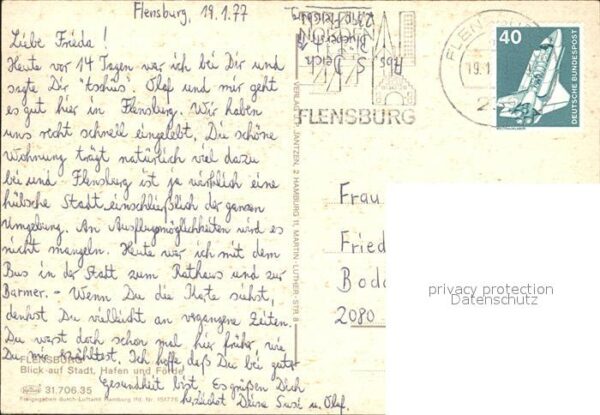 Flensburg, 19.1.77
Liebe Frieda!
Heute vor 14 Tagen war ich bei Dir und
sagte Dir "tschüs". Olaf und mir geht
es gut hier in Flensburg. Wir haben
uns recht schnell eingelebt. Die schöne
Wohnung trägt natürlich viel dazu
bei und Flensburg ist ja wirklich eine
hübsche Stadt einschließlich der ganzen
Umgebung. An Ausflugmöglichkeiten wird es
nicht mangeln. Heute war ich mit dem
Bus in der Stadt zum Rathaus und zur
Barmer. - Wenn Du die Karte siehst,
denkst Du vielleicht an vergangene Zeiten.
Du warst doch schon mal hier früher wie
Du mir erzähltest. Ich hoffe daß Du bei guter
Gesundheit bist. Es grüßen Dich
herzlichst Deine Susi u. Olaf.
FLENSBURG
Blick auf Stadt, Hafen und Förde
31.706.35
Freigegeben durch Luftamt Hamburg Nr.
VERLAG JANTZEN, 2 HAMBURG 11, MARTIN-LUTHER-STR. 8
Abs. S. Deich
239 Flensburg
FLENSBURG
FLEN
19.1
2
40
DEUTSCHE BUNDESPOST
WELTRAUMLABOR
Frau
Fried
Bod
2080
privacy protection
Datenschutz